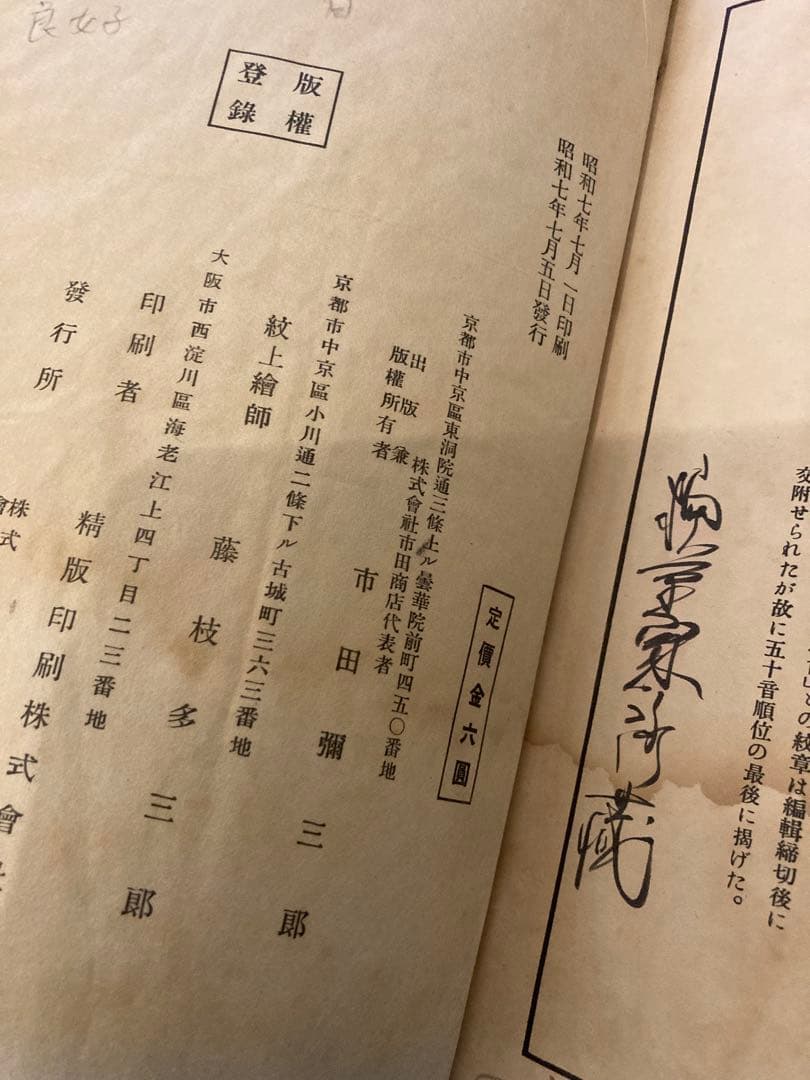 交附せられたが故に五十音順位の最後に掲げた。
の紋章は編輯締切後に
所藏
昭和七年七月一日印刷
昭和七年七月五日發行
定價金六圓
京都市中京區東洞院通三條上ル曇華院前町四五〇番地
出版兼
版權所有者
株式會社市田商店代表者
市田彌三郎
京都市中京區小川通二條下ル古城町三六三番地
紋上繪師
藤枝多三郎
大阪市西淀川區海老江上四丁目二三番地
印刷者
精版印刷株式會社
發行所
株式
版權
登錄
良女子